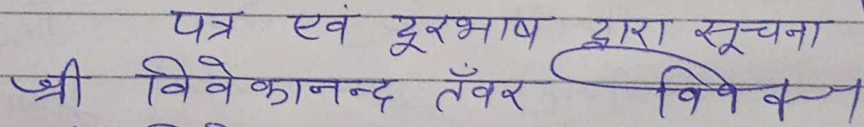 पत्र एवं दूरभाष द्वारा सूचना
श्री विवेकानन्द तँवर